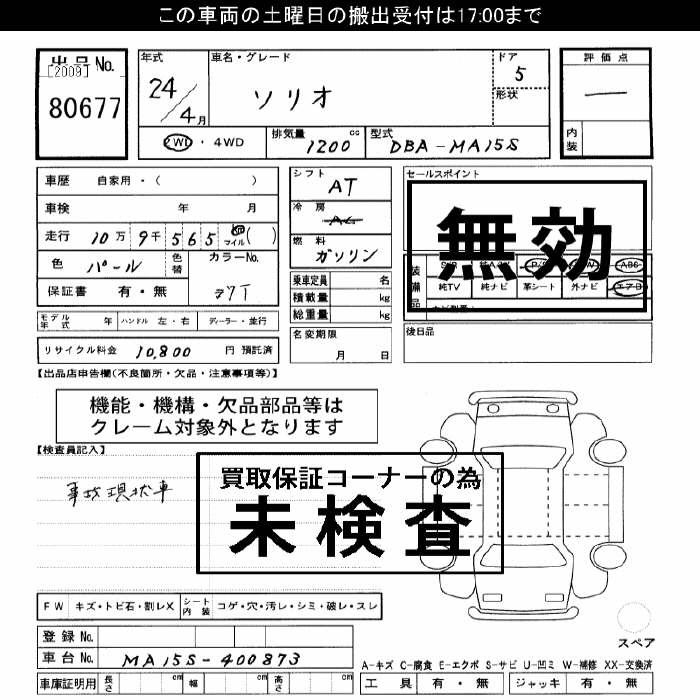 この車両の土曜日の搬出受付は17:00まで
出品No.
[2009]
80677
年式
24/4月
車名・グレード
ソリオ
ドア
5
形状
評価点
—
内装
2WD・4WD
排気量
1200cc
型式
DBA-MA15S
車歴 自家用・( )
車検 年 月
走行 10万9千565 マイル( )
色 パール
色替
カラーNo.
Z7T
保証書 有・無
シフト
AT
冷房
AC
燃料
ガソリン
乗車定員 名
積載量 kg
総重量 kg
セールスポイント
無効
装備品
S/R 純AW P/S P/W ABS
純TV 純ナビ 革シート 外ナビ エアB
モデル年式 年 ハンドル 左・右 ディーラー・並行
リサイクル料金 10,800 円 預託済
名変期限
月 日
後日品
【出品店申告欄(不良箇所・欠品・注意事項等)】
機能・機構・欠品部品等は
クレーム対象外となります
【検査員記入】
事故現状車
買取保証コーナーの為
未検査
FW キズ・トビ石・割レX
シート内装 コゲ・穴・汚レ・シミ・破レ・スレ
登録No.
車台No. MA15S-400873
車庫証明用 長さ cm 幅 cm 高さ cm
スペア
A-キズ C-腐食 E-エクボ S-サビ U-凹ミ W-補修 XX-交換済
工具 有・無 ジャッキ 有・無